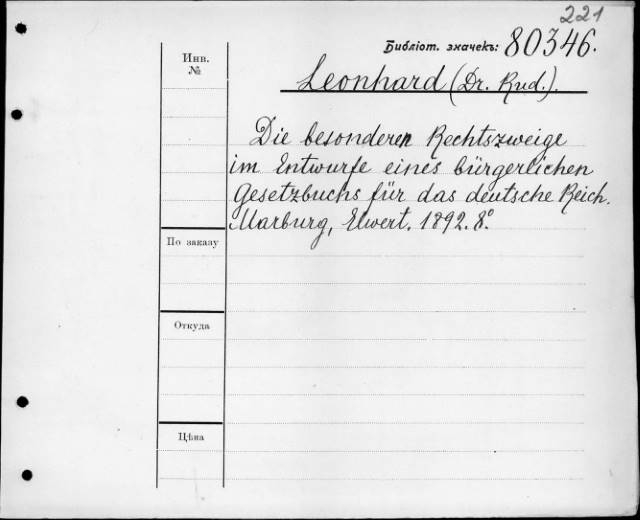 221
Библіот. значекъ: 80346.
Инв.
№
Leonhard (Dr. Rud.).
Die besonderen Rechtszweige
im Entwurfe eines bürgerlichen
Gesetzbuchs für das deutsche Reich.
Marburg, Elwert. 1892. 8º.
По заказу
Откуда
Цѣна